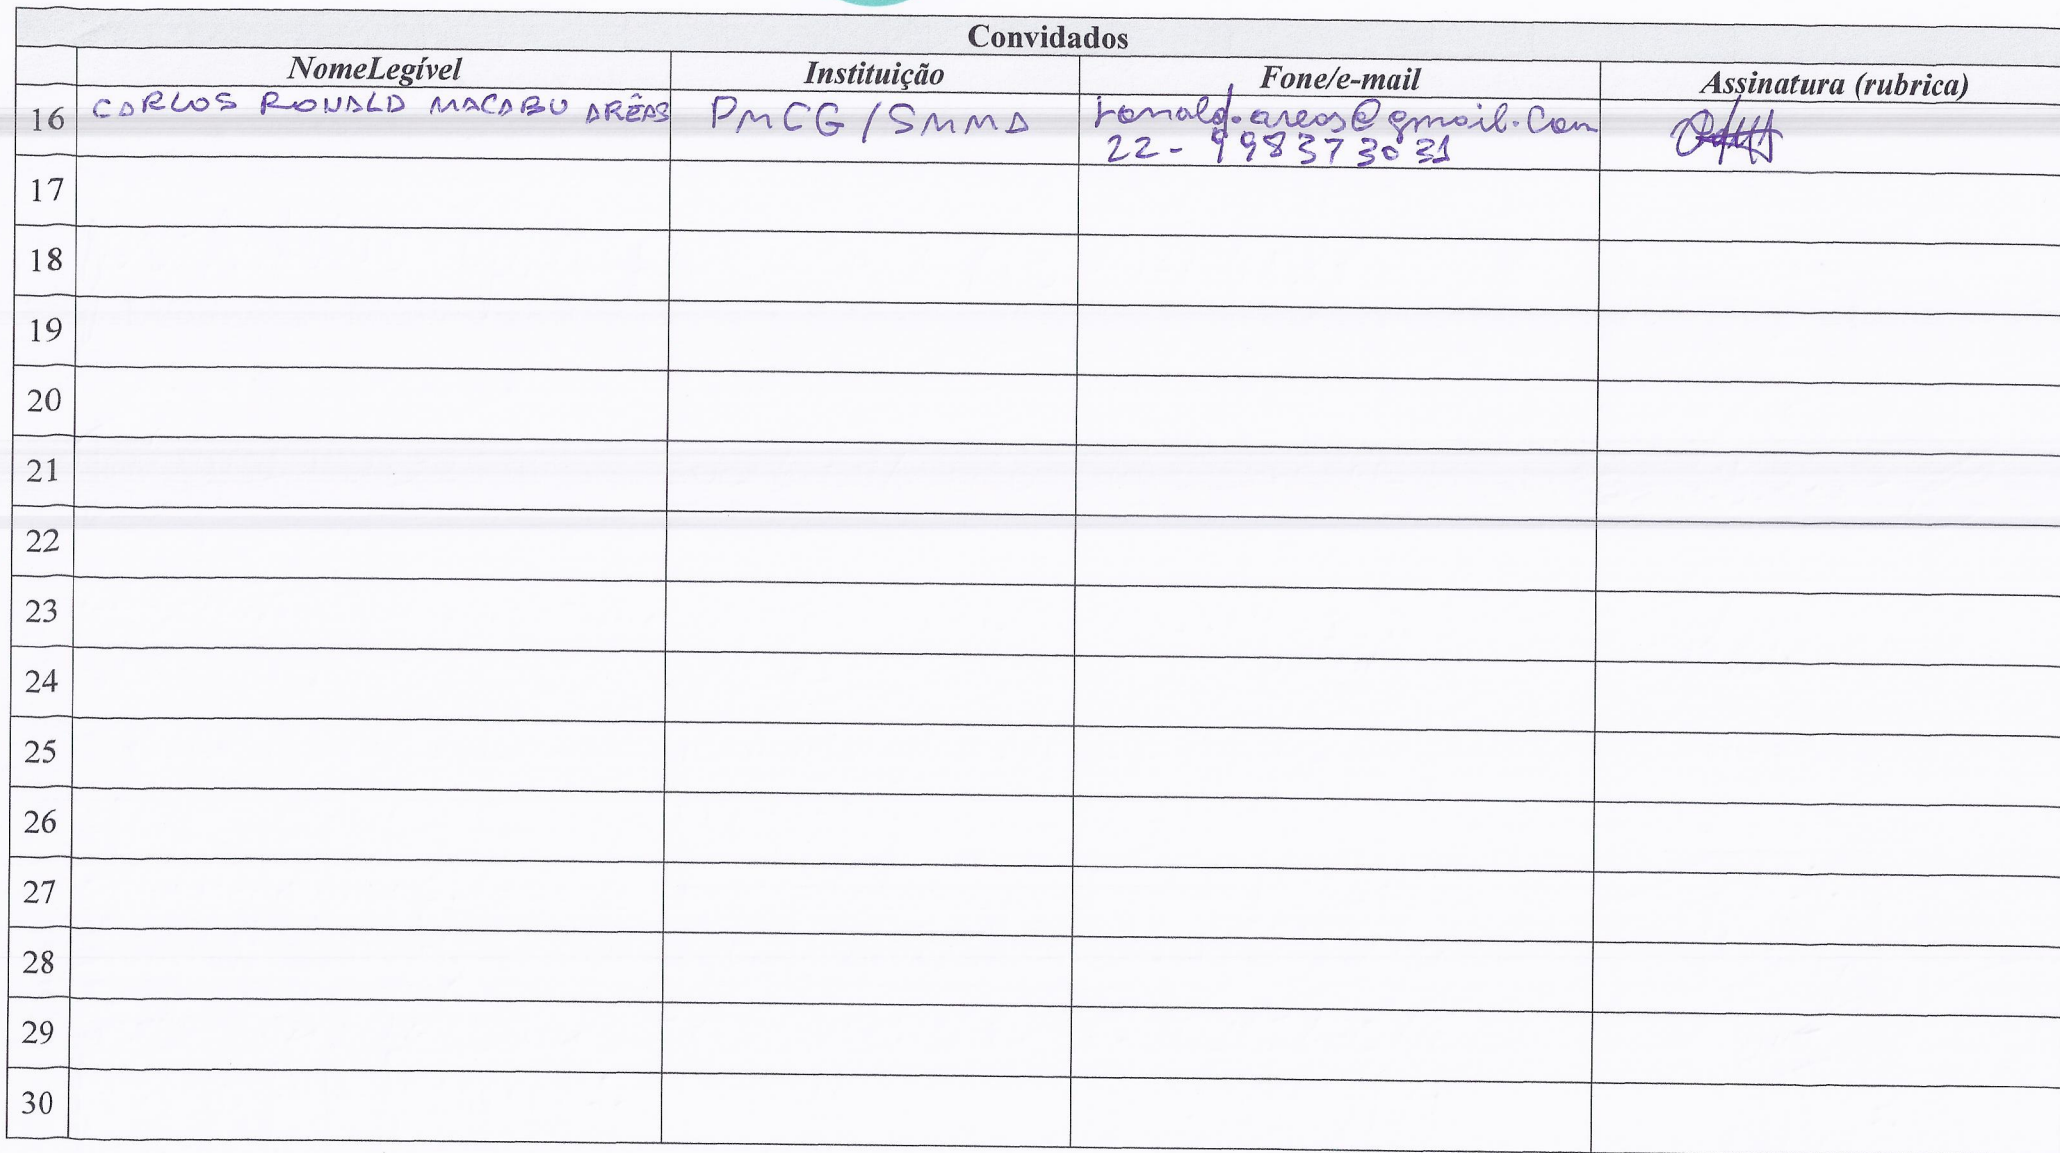 Convidados
NomeLegível Instituição Fone/e-mail Assinatura (rubrica)
16 CARLOS RONALD MACABU ARÊAS PMCG/SMMA ronald.areas@gmail.com
22-998373031
17
18
19
20
21
22
23
24
25
26
27
28
29
30